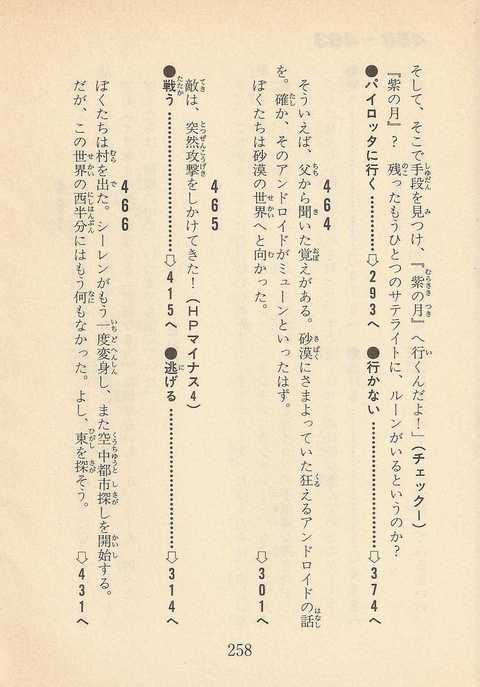 そして、そこで手段を見つけ、『紫の月』へ行くんだよ！」(チェックー)
『紫の月』？　残ったもうひとつのサテライトに、ルーンがいるというのか？
●パイロッタに行く…………⇨293へ　●行かない…………⇨374へ
464
そういえば、父から聞いた覚えがある。砂漠にさまよっていた狂えるアンドロイドの話
を。確か、そのアンドロイドがミューンといったはず。
ぼくたちは砂漠の世界へと向かった。
⇨301へ
465
敵は、突然攻撃をしかけてきた！(HPマイナス4)
●戦う…………⇨415へ　●逃げる…………⇨314へ
466
ぼくたちは村を出た。シーレンがもう一度変身し、また空中都市探しを開始する。
だが、この世界の西半分にはもう何もなかった。よし、東を探そう。
⇨431へ
258